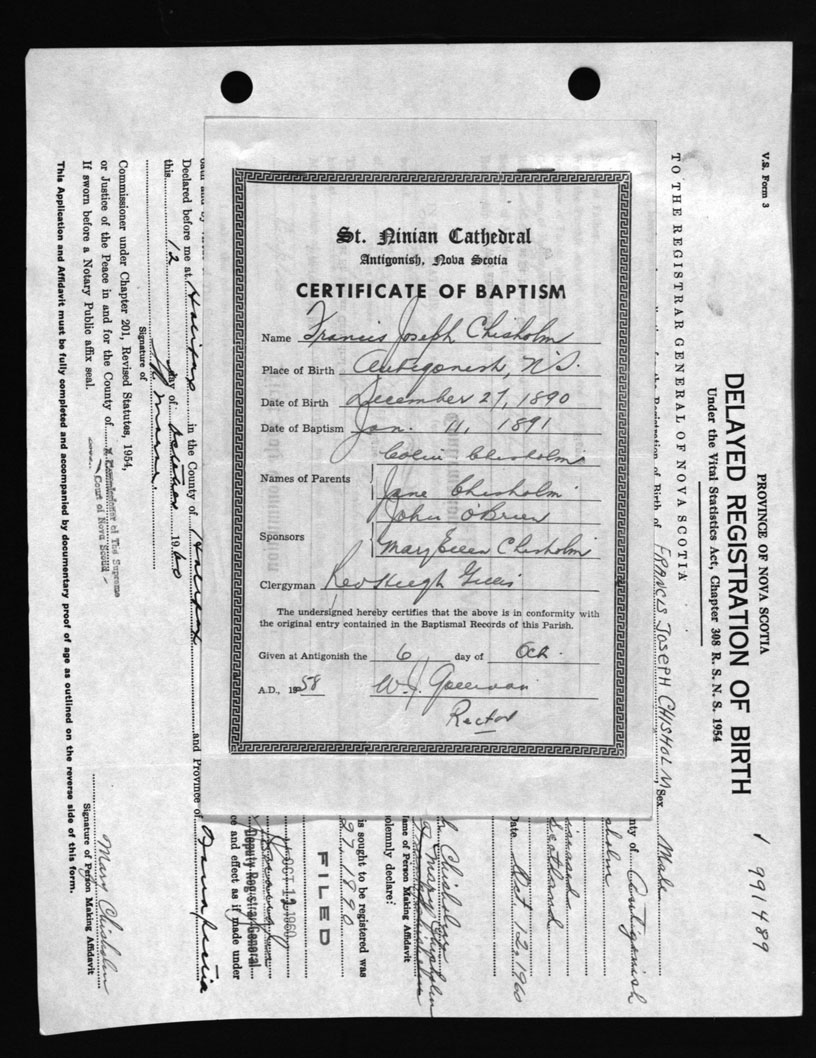 St. Ninian Cathedral
Antigonish, Nova Scotia
CERTIFICATE OF BAPTISM
Name Francis Joseph Chisholm
Place of Birth Antigonish, N.S.
Date of Birth December 27, 1890
Date of Baptism Jan. 11, 1891
Colin Chisholm
Names of Parents
Jane Chisholm
John O'Brien
Sponsors
Mary Ellen Chisholm
Clergyman Rev Hugh Gillis
The undersigned hereby certifies that the above is in conformity with
the original entry contained in the Baptismal Records of this Parish.
Given at Antigonish the 6 day of Oct.
A.D., 1958 W. J.
Rector
V.S. Form 3
PROVINCE OF NOVA SCOTIA
DELAYED REGISTRATION OF BIRTH
Under the Vital Statistics Act, Chapter 308 R. S. N. S. 1954
991489
TO THE REGISTRAR GENERAL OF NOVA SCOTIA
for the Registration of Birth of FRANCIS JOSEPH CHISHOLM, Sex Male
nty of Antigonish
sholm
Scotland
Date Oct 12, 1960
Chisholm
Mary Chisholm
ame of Person Making Affidavit
olemnly declare:
is sought to be registered was
27 1890
FILED
OCT 12 1960
Deputy Registrar General
ce and effect as if made under
oath and by
Declared before me at Halifax in the County of Halifax and Province of Nova Scotia
this 12 day of October 1960
Signature of
A Commissioner of The Supreme
Court of Nova Scotia
Commissioner under Chapter 201, Revised Statutes, 1954,
or Justice of the Peace in and for the County of
If sworn before a Notary Public affix seal.
Mary Chisholm
Signature of Person Making Affidavit
This Application and Affidavit must be fully completed and accompanied by documentary proof of age as outlined on the reverse side of this form.